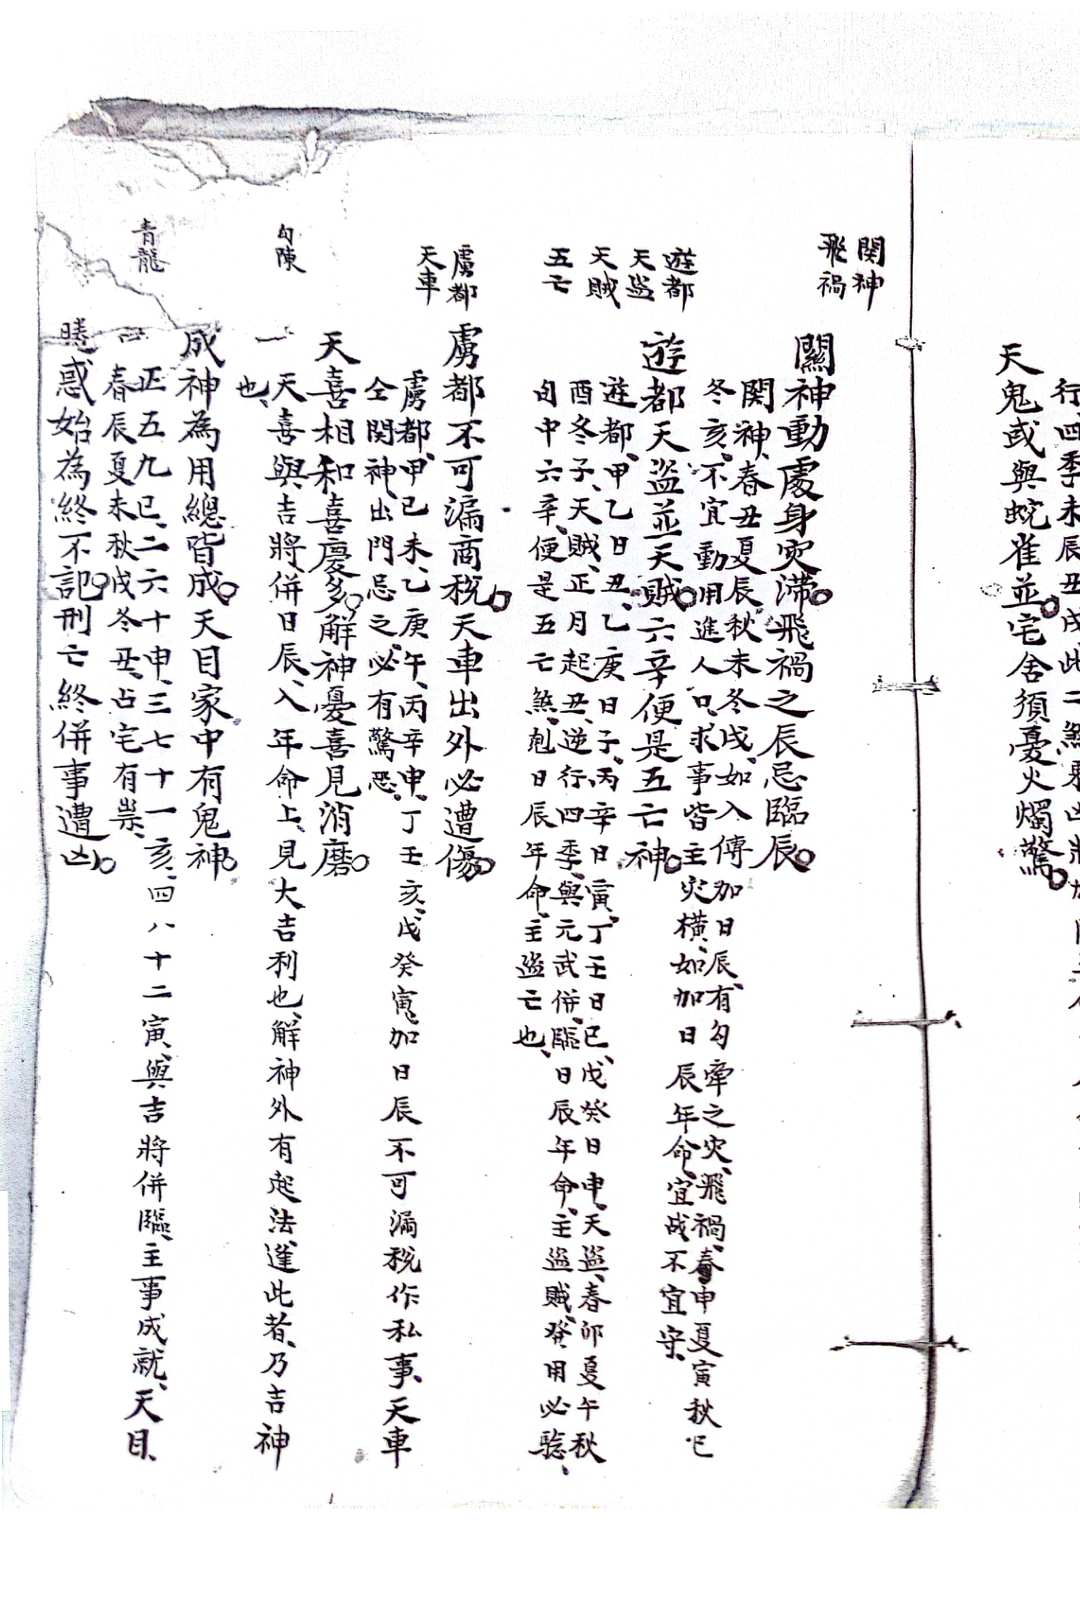 行四季未辰丑戌此二煞乘凶將
天鬼或與蛇雀並宅舍須憂火燭驚
関神
飛禍
關神動處身灾滯飛禍之辰忌臨辰
関神、春丑夏辰、秋未冬戌、如入傳加日辰、有勾牽之灾、飛禍、春申夏寅秋巳
冬亥、不宜動用進人口、求事皆主灾橫、如加日辰年命、宜成不宜守、
遊都
天盜
天賊
五亡
遊都天盜並天賊六辛便是五亡神
遊都、甲乙日丑、乙庚日子、丙辛日寅、丁壬日巳、戊癸日申、天盜、春卯夏午秋
酉冬子、天賊、正月起丑、逆行四季、與元武併臨日辰年命、主盜賊、發用必驗、
旬中六辛、便是五亡煞、剋日辰年命、主盜亡也、
虜都
天車
虜都不可漏商稅天車出外必遭傷
虜都、甲己未、乙庚午、丙辛申、丁壬亥、戊癸寅、加日辰不可漏稅作私事、天車
仝関神、出門忌之、必有驚恐、
天喜相和喜慶多解神憂喜見消磨
勾陳
一天喜與吉將、併日辰、入年命上、見大吉利也、解神外有起法、逢此者、乃吉神
也、
成神為用總皆成天目家中有鬼神
青龍
一正五九巳、二六十申、三七十一亥、四八十二寅、與吉將併臨、主事成就、天目、
春辰夏未秋戌冬丑、占宅有祟、
惑始為終不記刑亡終併事遭凶